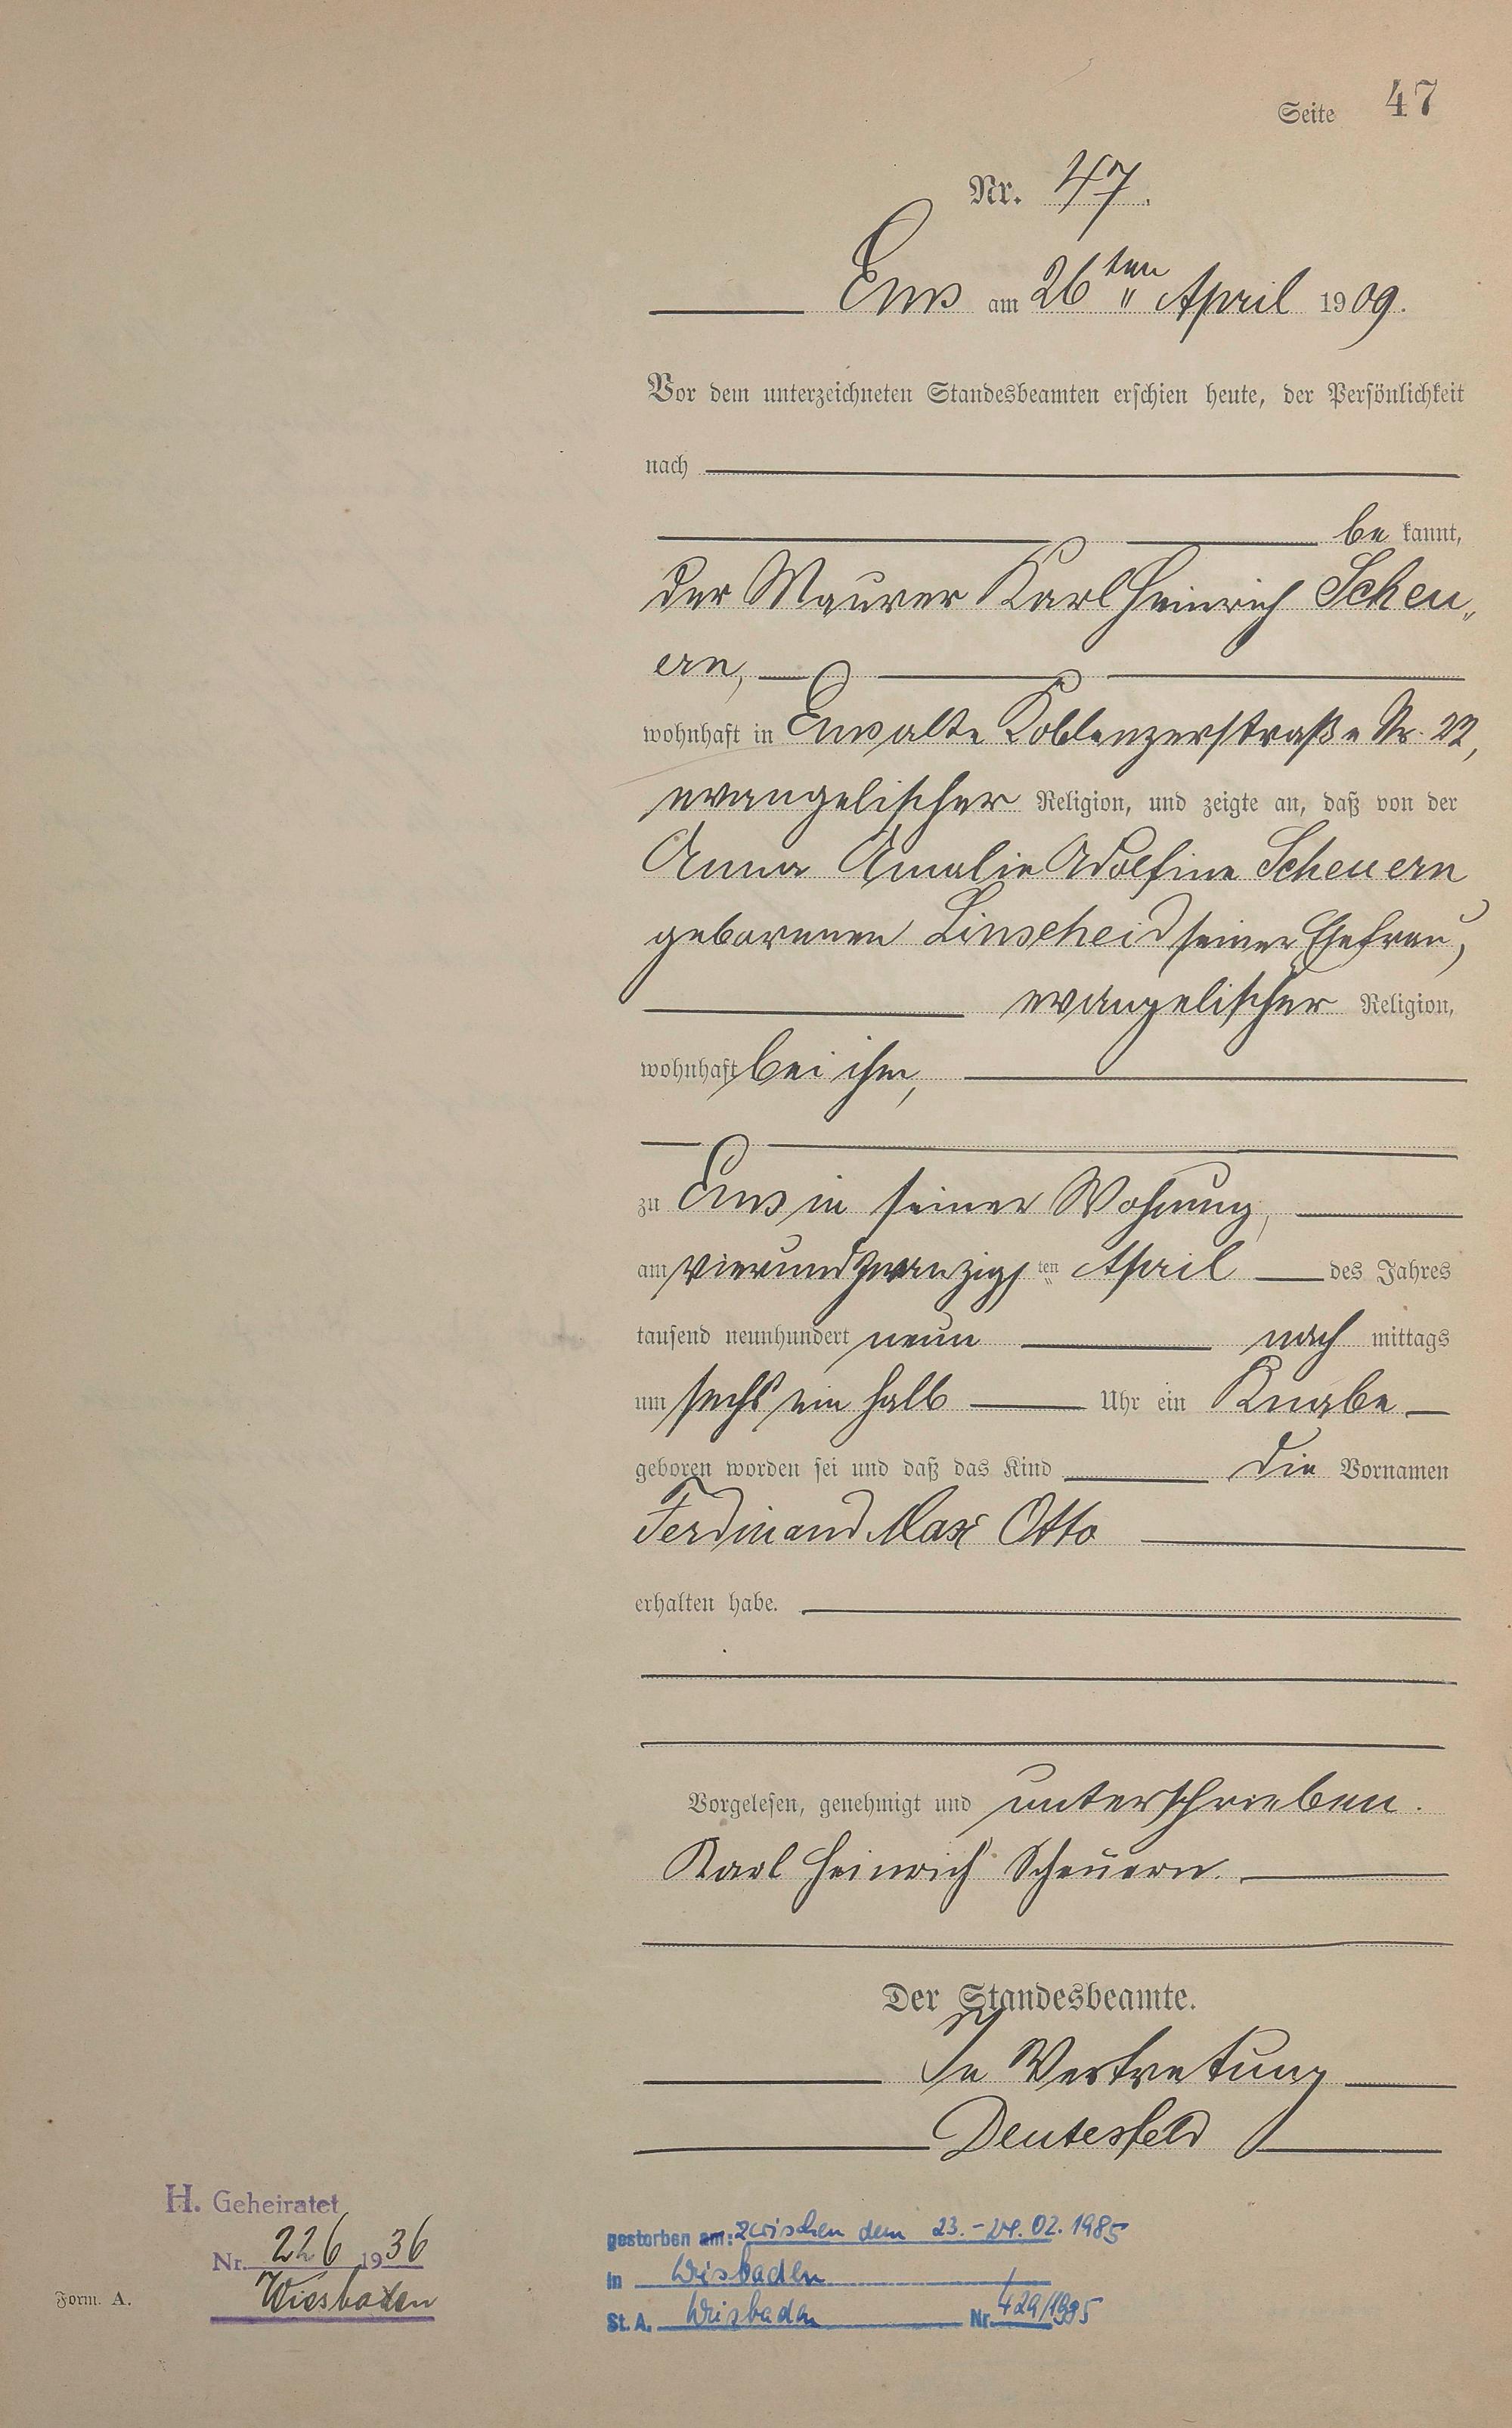 Seite 47
Nr. 47.
Ems am 26ten April 1909.
Vor dem unterzeichneten Standesbeamten erschien heute, der Persönlichkeit
nach
be kannt,
der Maurer Karl Heinrich Scheu„
ern,
wohnhaft in Ems alte Koblenzerstraße Nr. 22,
evangelischer Religion, und zeigte an, daß von der
Anna Amalie Adolfine Scheuern
geborenen Linscheid seiner Ehefrau,
evangelischer Religion,
wohnhaft bei ihm,
zu Ems in seiner Wohnung,
am vierundzwanzigsten April des Jahres
tausend neunhundert neun nach mittags
um sechs ein halb Uhr ein Knabe
geboren worden sei und daß das Kind die Vornamen
Ferdinand Max Otto
erhalten habe.
Vorgelesen, genehmigt und unterschrieben.
Karl Heinrich Scheuern.
Der Standesbeamte.
In Vertretung
Deutesfeld
H. Geheiratet
Nr. 226 1936
Wiesbaden
Form. A.
gestorben am: zwischen dem 23.-24.02.1985
in Wiesbaden
St. A. Wiesbaden Nr. 429/1985